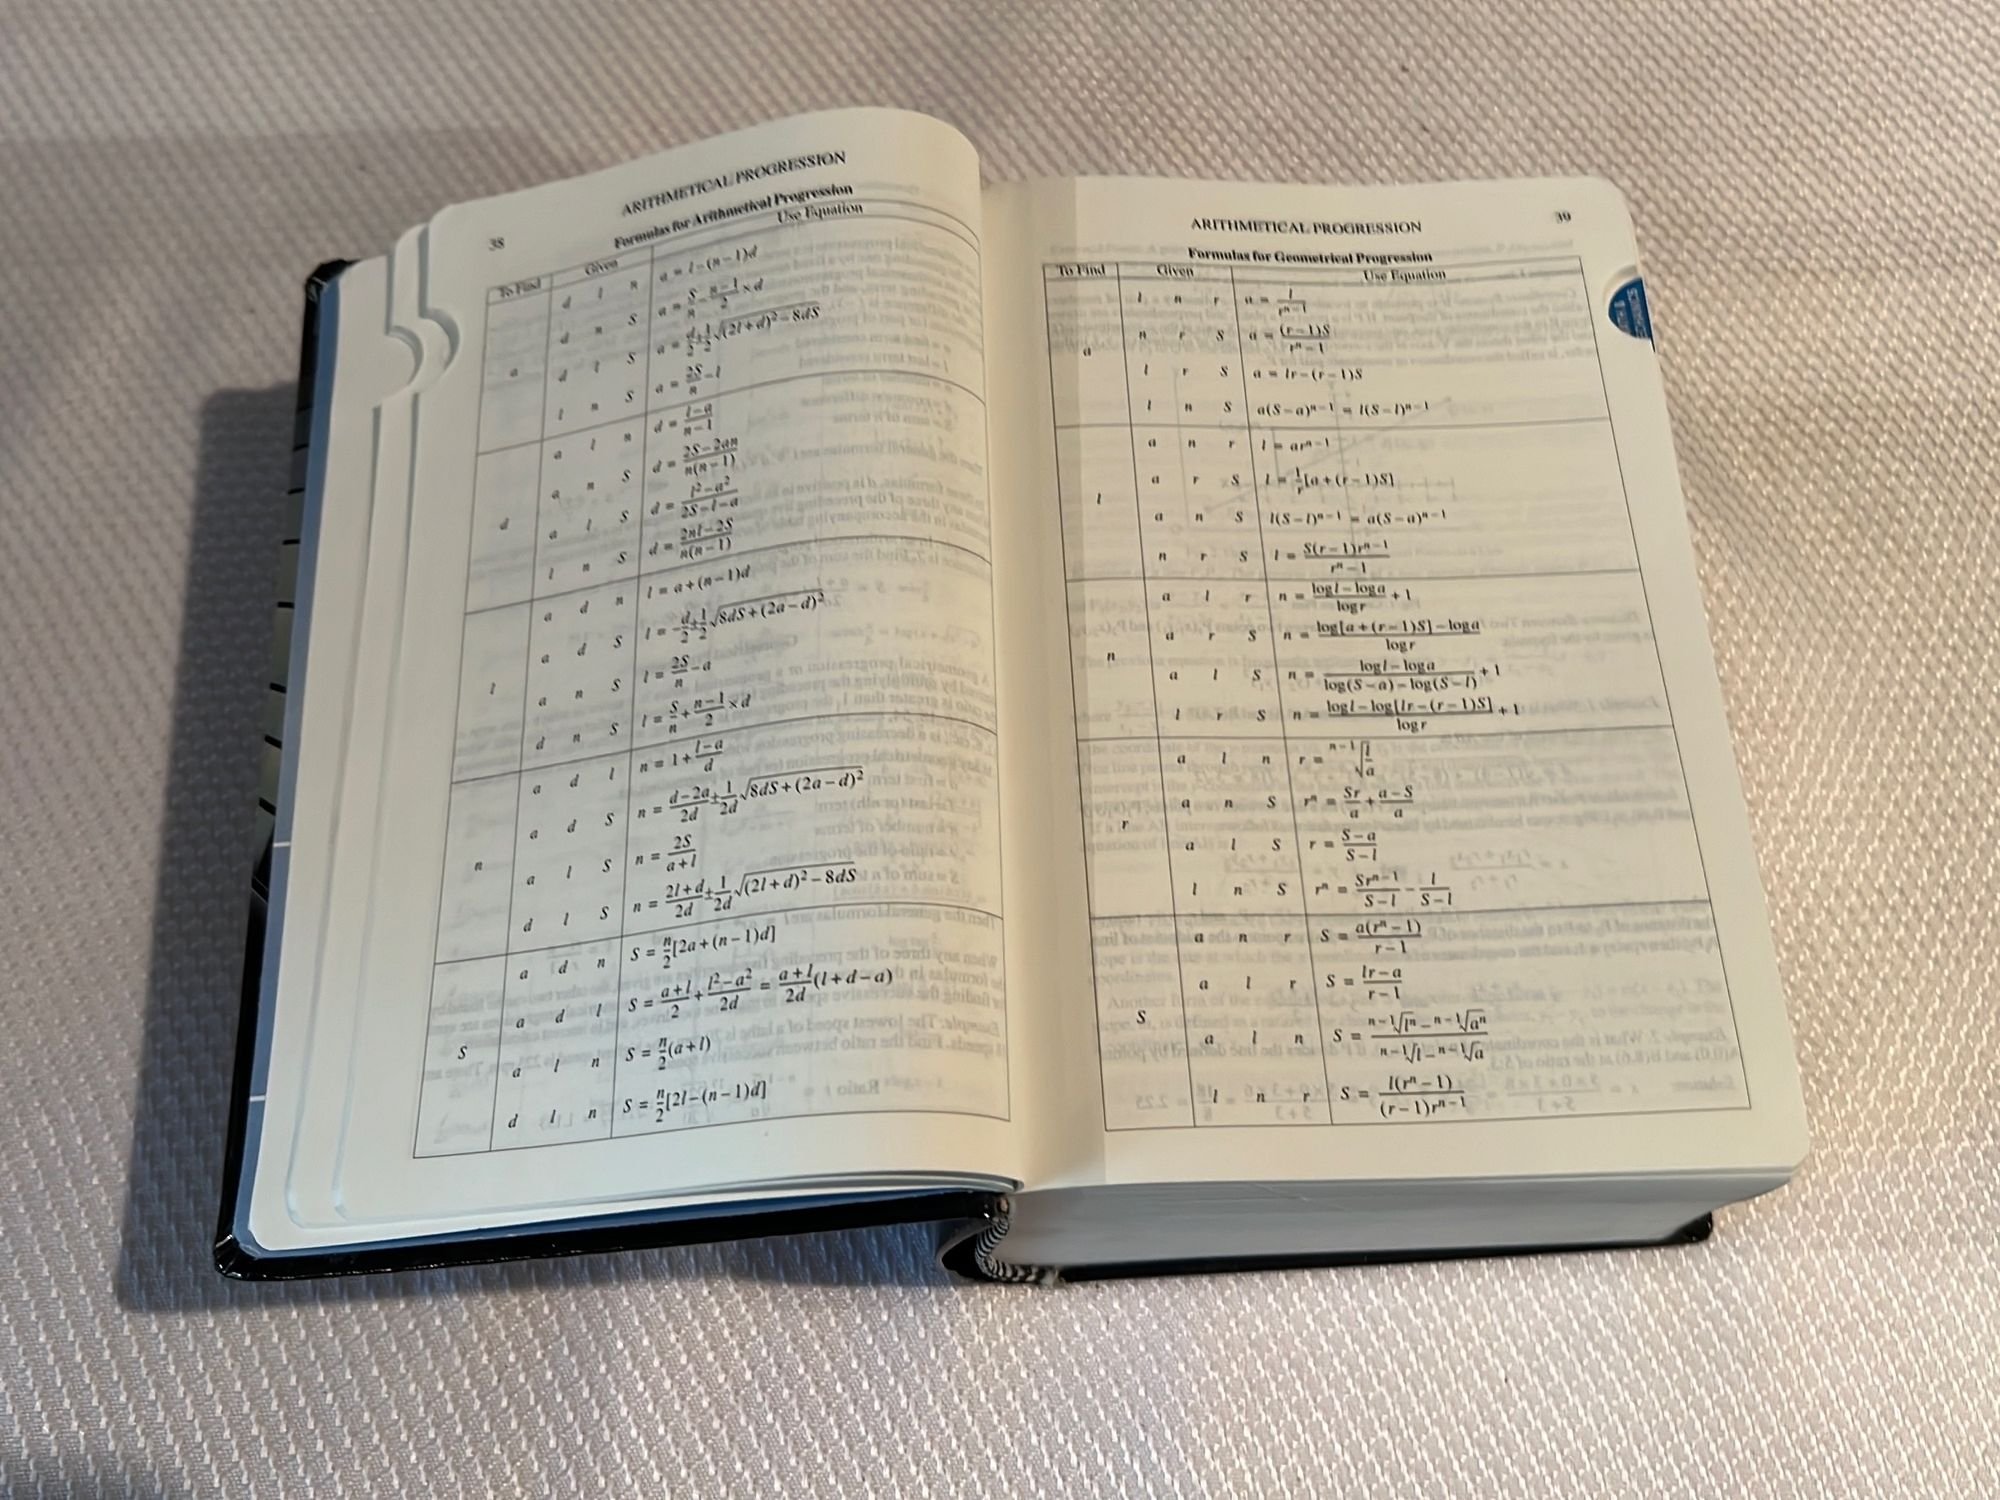 38
ARITHMETICAL PROGRESSION
Formulas for Arithmetical Progression
To Find Given Use Equation
a
d l n a = l − (n − 1)d
d n S a = S/n − (n − 1)/2 × d
d l S a = d/2 ± 1/2 √((2l + d)² − 8dS)
l n S a = 2S/n − l
d
a l n d = (l − a)/(n − 1)
a n S d = (2S − 2an)/(n(n − 1))
a l S d = (l² − a²)/(2S − l − a)
l n S d = (2nl − 2S)/(n(n − 1))
l
a d n l = a + (n − 1)d
a d S l = −d/2 ± 1/2 √(8dS + (2a − d)²)
a n S l = 2S/n − a
d n S l = S/n + (n − 1)/2 × d
n
a d l n = 1 + (l − a)/d
a d S n = (d − 2a)/2d ± 1/2d √(8dS + (2a − d)²)
a l S n = 2S/(a + l)
d l S n = (2l + d)/2d ± 1/2d √((2l + d)² − 8dS)
S
a d n S = n/2 [2a + (n − 1)d]
a d l S = (a + l)/2 + (l² − a²)/2d = (a + l)/2d (l + d − a)
a l n S = n/2 (a + l)
d l n S = n/2 [2l − (n − 1)d]
ARITHMETICAL PROGRESSION
39
Formulas for Geometrical Progression
To Find Given Use Equation
a
l n r a = l/rⁿ⁻¹
n r S a = (r − 1)S/(rⁿ − 1)
l r S a = lr − (r − 1)S
l n S a(S − a)ⁿ⁻¹ = l(S − l)ⁿ⁻¹
l
a n r l = arⁿ⁻¹
a r S l = 1/r [a + (r − 1)S]
a n S l(S − l)ⁿ⁻¹ = a(S − a)ⁿ⁻¹
n r S l = S(r − 1)rⁿ⁻¹/(rⁿ − 1)
n
a l r n = (log l − log a)/log r + 1
a r S n = (log[a + (r − 1)S] − log a)/log r
a l S n = (log l − log a)/(log(S − a) − log(S − l)) + 1
l r S n = (log l − log[lr − (r − 1)S])/log r + 1
r
a l n r = ⁿ⁻¹√(l/a)
a n S rⁿ = Sr/a + (a − S)/a
a l S r = (S − a)/(S − l)
l n S rⁿ = Srⁿ⁻¹/(S − l) − l/(S − l)
S
a n r S = a(rⁿ − 1)/(r − 1)
a l r S = (lr − a)/(r − 1)
a l n S = (ⁿ⁻¹√lⁿ − ⁿ⁻¹√aⁿ)/(ⁿ⁻¹√l − ⁿ⁻¹√a)
l n r S = l(rⁿ − 1)/((r − 1)rⁿ⁻¹)